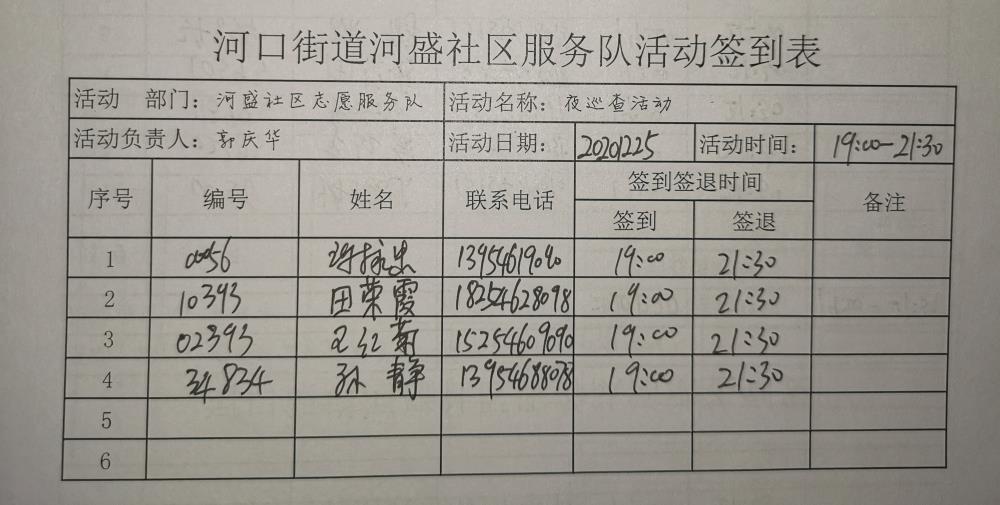 河口街道河盛社区服务队活动签到表
活动 部门：河盛社区志愿服务队 活动名称：夜巡查活动
活动负责人：郭庆华 活动日期：20201225 活动时间：19:00-21:30
序号 编号 姓名 联系电话 签到签退时间 备注
签到 签退
1 0056 13954619090 19:00 21:30
2 10393 田荣霞 18254628098 19:00 21:30
3 02393 王红菊 15254609090 19:00 21:30
4 34834 孙静 13954688078 19:00 21:30
5
6